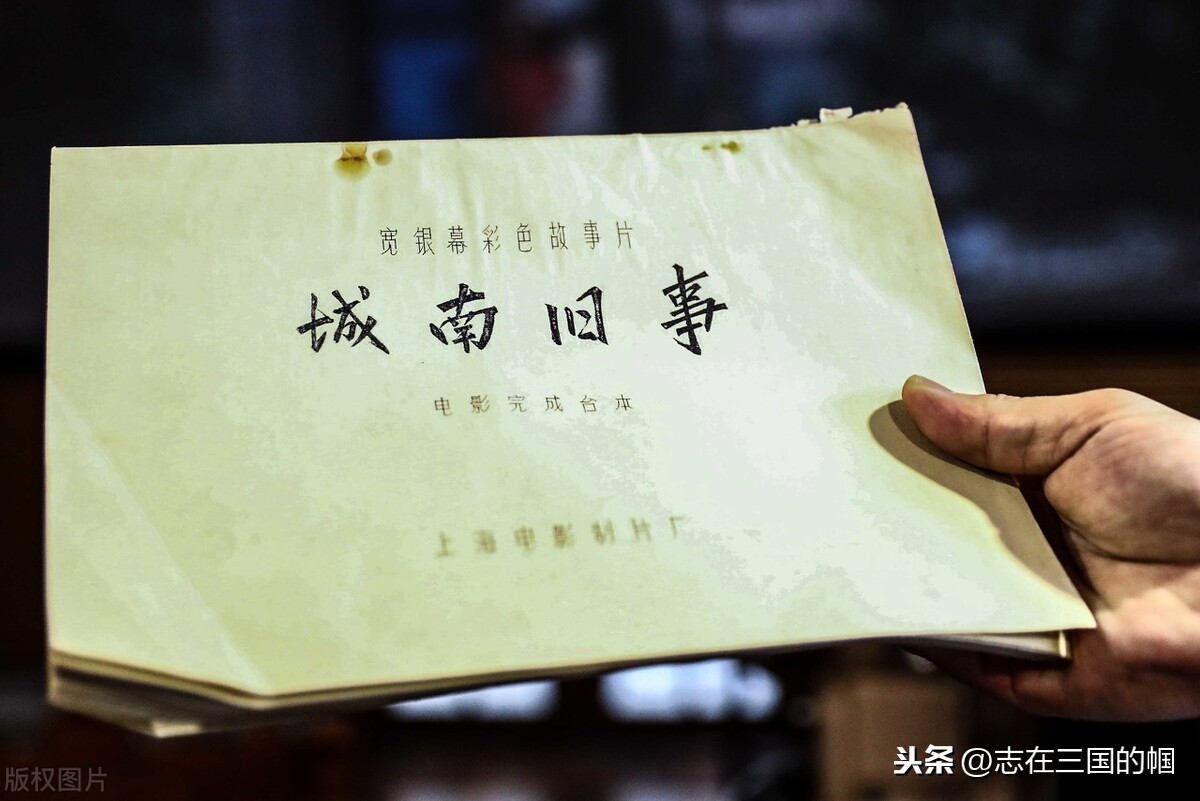 宽银幕彩色故事片
城南旧事
电影完成台本
上海电影制片厂
版权图片
头条 @志在三国的帼